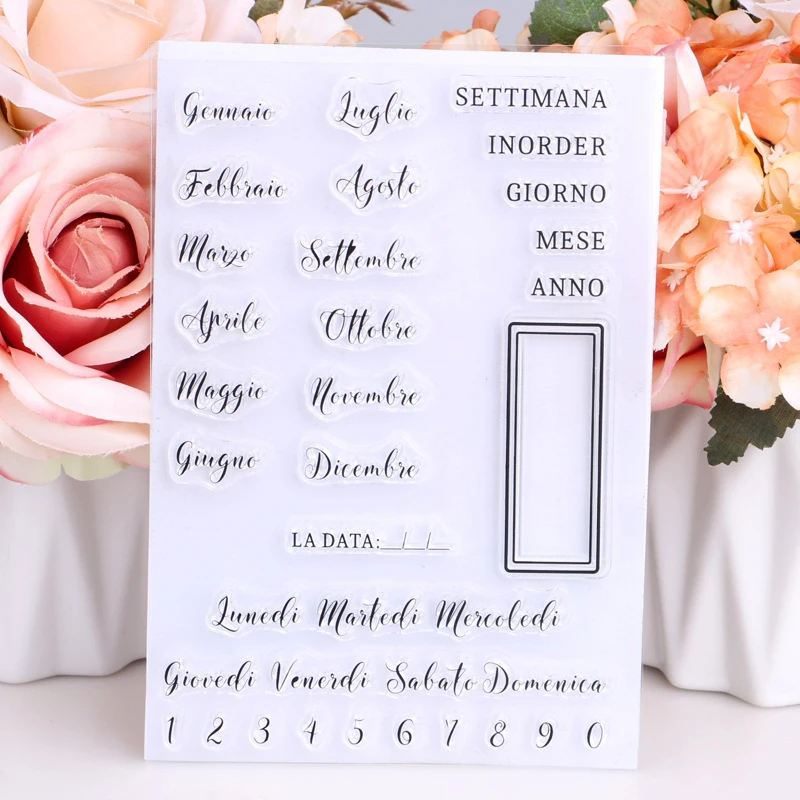 Gennaio
Febbraio
Marzo
Aprile
Maggio
Giugno
Luglio
Agosto
Settembre
Ottobre
Novembre
Dicembre
SETTIMANA
INORDER
GIORNO
MESE
ANNO
LA DATA:__/__/__
Lunedi Martedi Mercoledi
Giovedi Venerdi Sabato Domenica
1 2 3 4 5 6 7 8 9 0